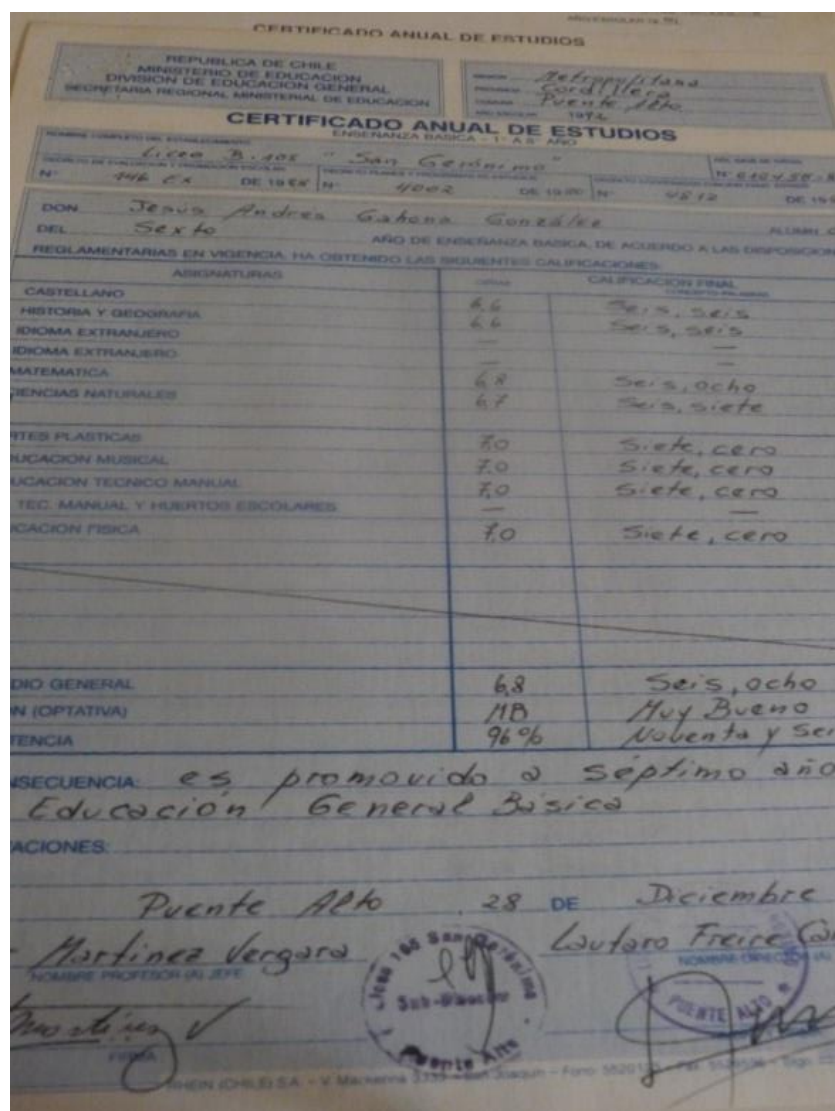 CERTIFICADO ANUAL DE ESTUDIOS
REPUBLICA DE CHILE
MINISTERIO DE EDUCACION
DIVISION DE EDUCACION GENERAL
SECRETARIA REGIONAL MINISTERIAL DE EDUCACION
Metropolitana
Cordillera
Puente Alto
CERTIFICADO ANUAL DE ESTUDIOS
ENSEÑANZA BASICA - 1° A 8° AÑO
NOMBRE COMPLETO DEL ESTABLECIMIENTO
Liceo B-105 "San Gerónimo"
N° 146 EX DE 19 N° 4002 DE 19 N° DE 19
DON Jesús Andrés Gahona González ALUMN
DEL Sexto AÑO DE ENSEÑANZA BASICA, DE ACUERDO A LAS DISPOSICION
REGLAMENTARIAS EN VIGENCIA, HA OBTENIDO LAS SIGUIENTES CALIFICACIONES:
ASIGNATURAS CALIFICACION FINAL
CASTELLANO 6,6 Seis, seis
HISTORIA Y GEOGRAFIA 6,6 Seis, seis
IDIOMA EXTRANJERO — —
IDIOMA EXTRANJERO — —
MATEMATICA 6,8 Seis, ocho
CIENCIAS NATURALES 6,7 Seis, siete
RTES PLASTICAS 7,0 Siete, cero
UCACION MUSICAL 7,0 Siete, cero
UCACION TECNICO MANUAL 7,0 Siete, cero
TEC. MANUAL Y HUERTOS ESCOLARES — —
CACION FISICA 7,0 Siete, cero
DIO GENERAL 6,8 Seis, ocho
N (OPTATIVA) MB Muy Bueno
TENCIA 96% Noventa y Sei
NSECUENCIA: es promovido a séptimo año
Educación General Básica
ACIONES:
Puente Alto 28 DE Diciembre
Martínez Vergara Lautaro Freire
NOMBRE PROFESOR (A) JEFE NOMBRE DIRECTOR (A)
Liceo 105 San Gerónimo
Sub-Director
Puente Alto
PUENTE ALTO
FIRMA
RHEIN (CHILE) S.A. - V. Mackenna 3333 - San Joaquín - Fono